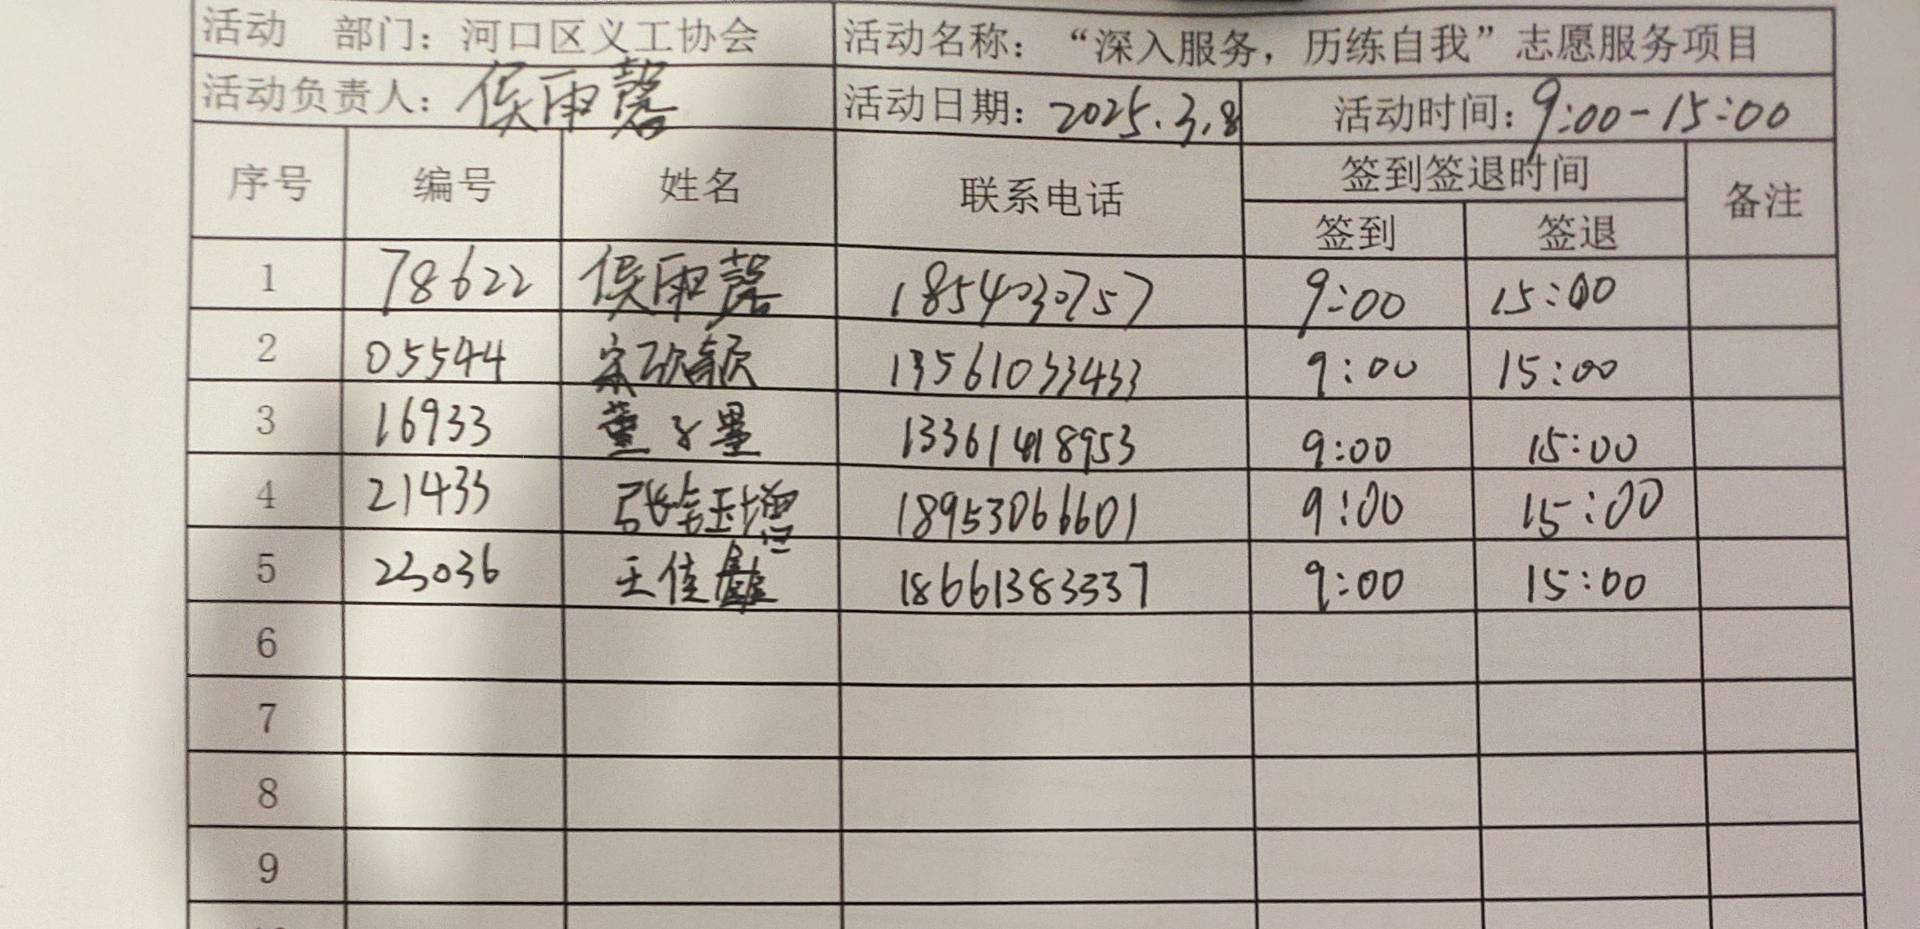 活动 部门：河口区义工协会 活动名称：“深入服务，历练自我”志愿服务项目
活动负责人：侯雨馨 活动日期：2025.3.8 活动时间：9:00-15:00
序号 编号 姓名 联系电话 签到签退时间 备注
签到 签退
1 78622 侯雨馨 1854030757 9:00 15:00
2 05544 宋欣颖 13561053433 9:00 15:00
3 16933 董子墨 13361418953 9:00 15:00
4 21433 张钰增 18953066601 9:00 15:00
5 23036 王佳 18661383337 9:00 15:00
6
7
8
9